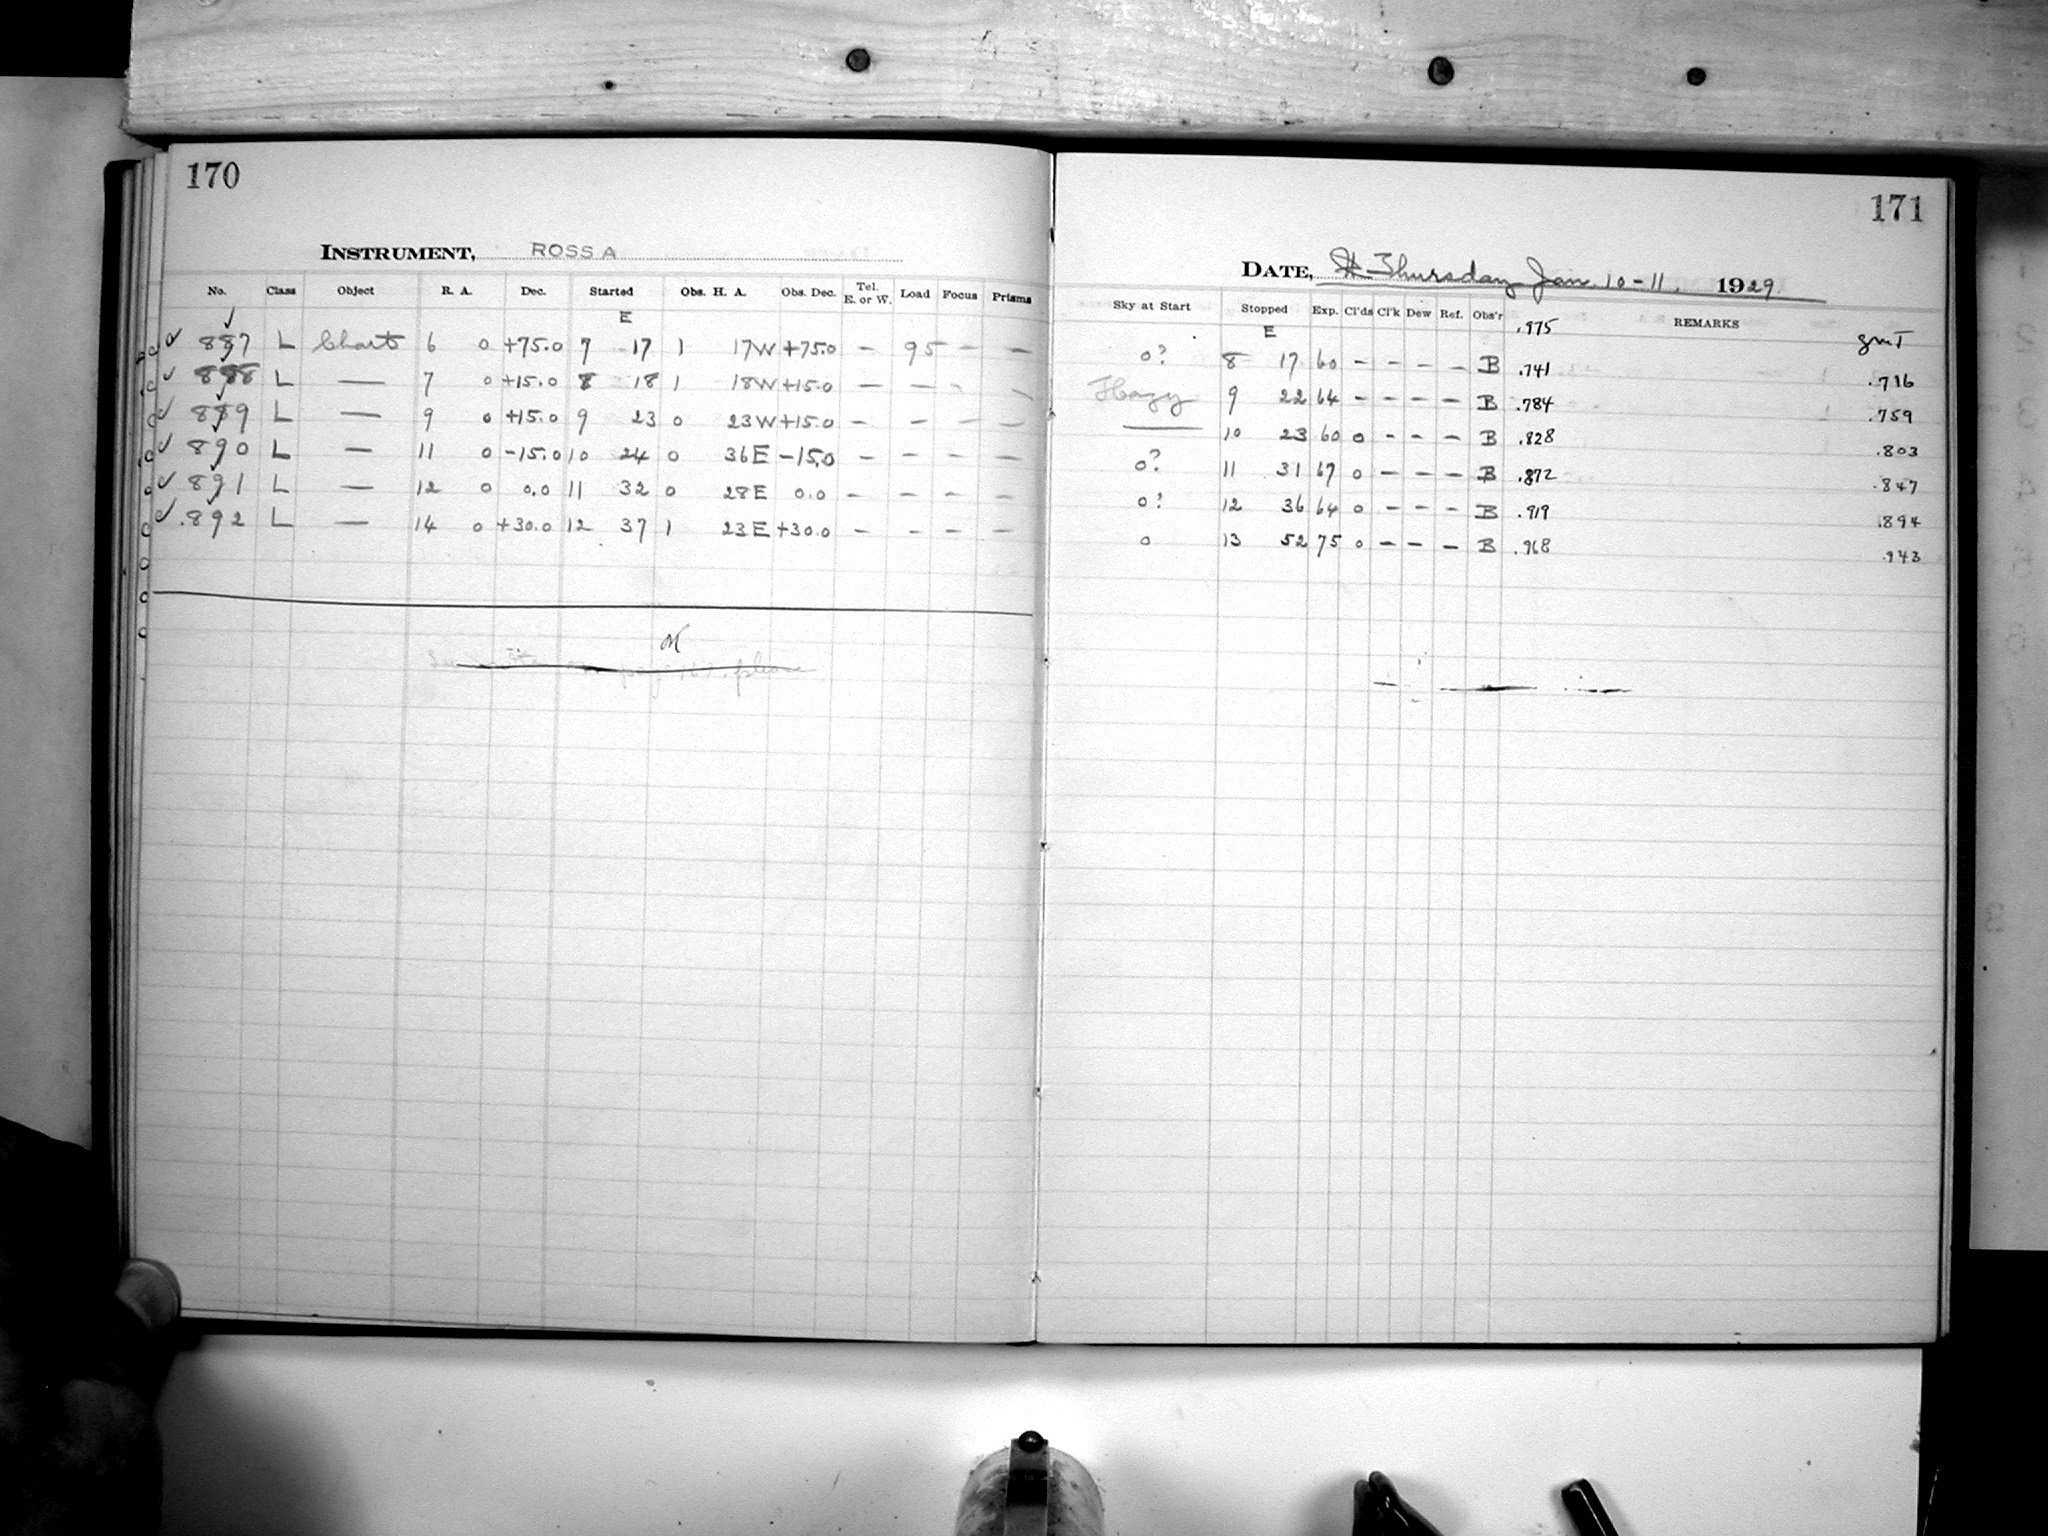 170
INSTRUMENT, ROSS A
No. Class Object R. A. Dec. Started Obs. H. A. Obs. Dec. Tel. E. or W. Load Focus Prisms
E
887 L Charts 6 0 +75.0 7 17 1 17W +75.0 — 95 — —
888 L — 7 0 +15.0 8 18 1 18W +15.0 — —
889 L — 9 0 +15.0 9 23 0 23W +15.0 — — — —
890 L — 11 0 -15.0 10 24 0 36E -15.0 — — — —
891 L — 12 0 0.0 11 32 0 28E 0.0 — — — —
.892 L — 14 0 +30.0 12 37 1 23E +30.0 — — — —
OK
please
171
DATE, Thursday Jan. 10-11. 1929
Sky at Start Stopped Exp. Cl'ds Cl'k Dew Ref. Obs'r REMARKS
E .975 GMT
0? 8 17 60 — — — — B .741 .716
Hazy 9 22 64 — — — — B .784 .759
—— 10 23 60 0 — — — B .828 .803
0? 11 31 67 0 — — — B .872 .847
0? 12 36 64 0 — — — B .919 .894
0 13 52 75 0 — — — B .968 .943